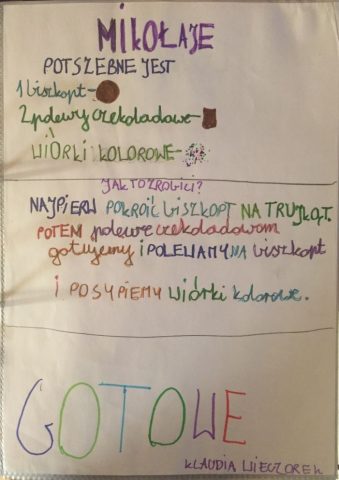 MIKOŁAJE
POTSZEBNE JEST
1 biszkopt-
2 polewy czekoladowe-
WIÓRKI KOLOROWE-
JAK TO ZROBIĆ?
NAJPIERW POKROIĆ biszkopt NA TRUJKĄT.
POTEM polewe czekoladowom
gotujemy i POLEWAMY NA biszkopt
i POSYPIEMY wiórki kolorowe.
GOTOWE
KLAUDIA WIECZOREK